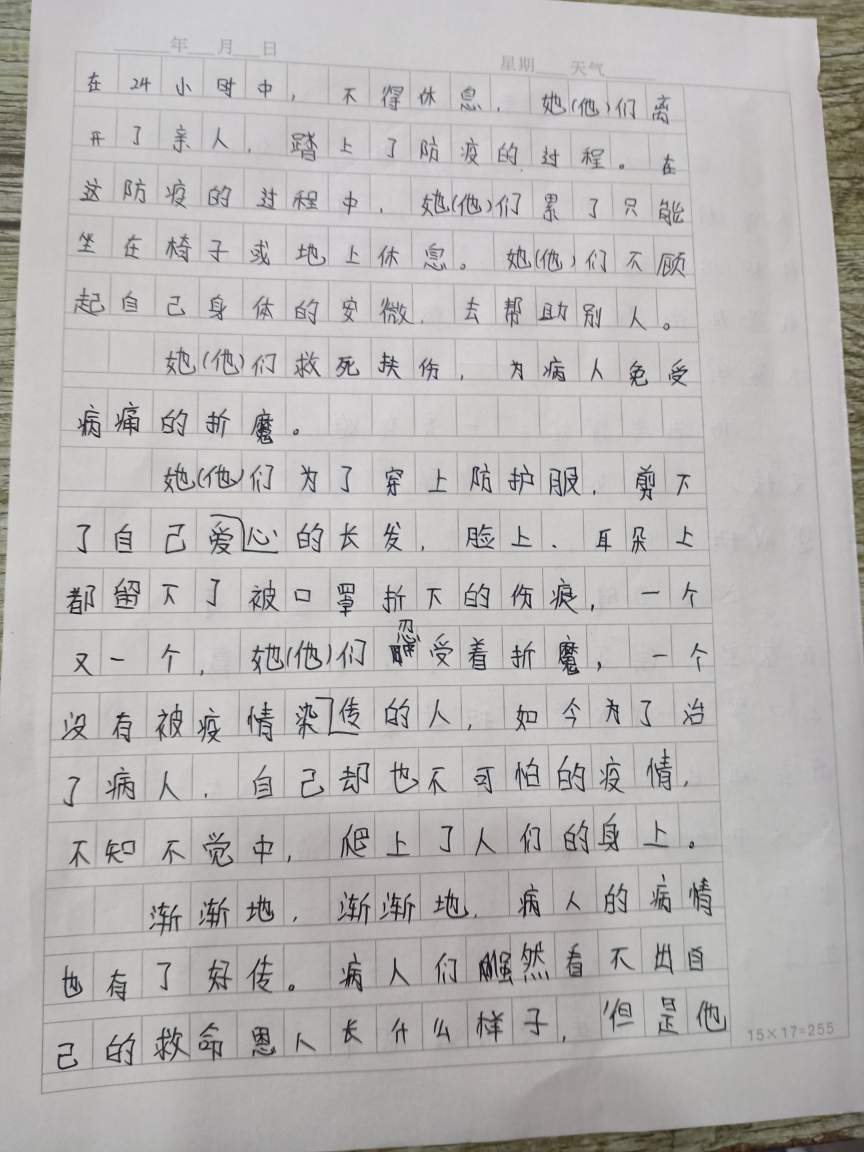 年 月 日 星期 天气
在24小时中，不得休息，她(他)们离
开了亲人，踏上了防疫的过程。在
这防疫的过程中，她(他)们累了只能
坐在椅子或地上休息。她(他)们不顾
起自己身体的安微，去帮助别人。
她(他)们救死扶伤，为病人免受
病痛的折魔。
她(他)们为了穿上防护服，剪下
了自己爱心的长发，脸上、耳朵上
都留下了被口罩折下的伤痕，一个
又一个，她(他)们忍受着折魔，一个
没有被疫情染传的人，如今为了治
了病人，自己却也不可怕的疫情，
不知不觉中，爬上了人们的身上。
渐渐地，渐渐地，病人的病情
也有了好传。病人们虽然看不出自
己的救命恩人长什么样子，但是他
15×17=255